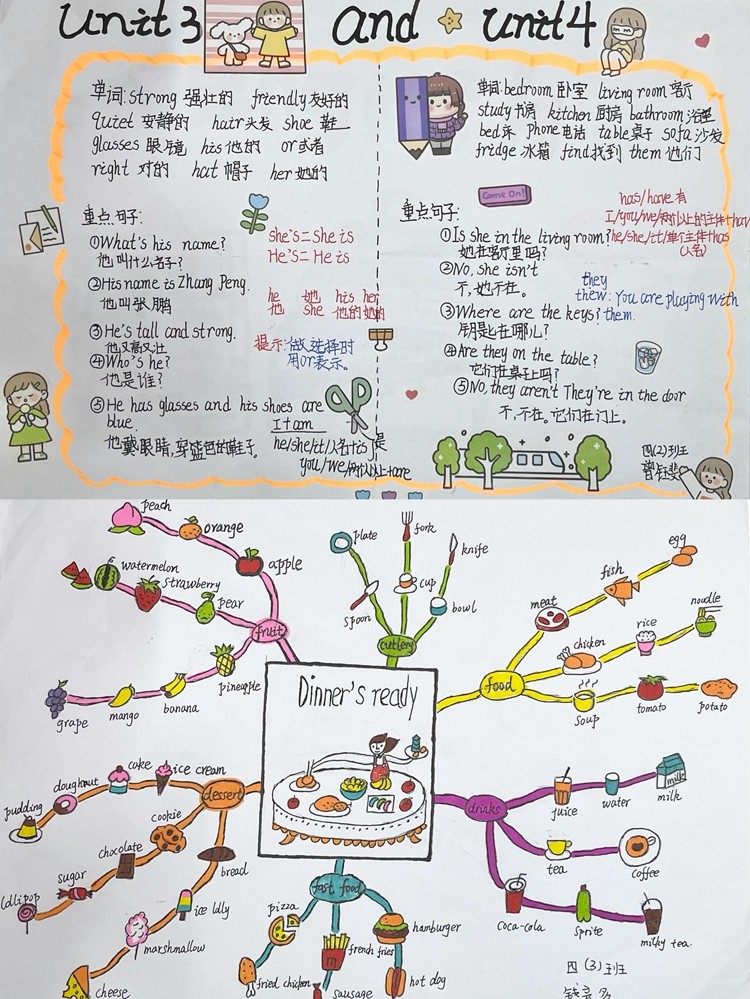 Unit 3 and unit4
单词: strong 强壮的 friendly 友好的
quiet 安静的 hair 头发 shoe 鞋
glasses 眼镜 his 他的 or 或者
right 对的 hat 帽子 her 她的
重点句子:
①What's his name?
他叫什么名子?
②His name is Zhang Peng.
他叫张鹏
③He's tall and strong.
他又高又壮
④Who's he?
他是谁?
⑤He has glasses and his shoes are
blue.
他戴眼睛,穿蓝色的鞋子。
she's = She is
He's = He is
he 她 his her
他 she 他的 她的
提示:做选择时
用or表示。
I+am
he/she/it/人名+is 是
you/we/两个以上+are
单词: bedroom 卧室 living room 客厅
study 书房 kitchen 厨房 bathroom 浴室
bed 床 Phone 电话 table 桌子 sofa 沙发
fridge 冰箱 find 找到 them 他们
Come On!
重点句子:
①Is she in the living room?
她在客厅里吗?
②No, she isn't
不,她不在。
③Where are the keys?
钥匙在哪儿?
④Are they on the table?
它们在桌子上吗?
⑤No, they aren't They're in the door
不,不在。它们在门上。
has/have 有
I/you/we/两个以上的主体+hav
he/she/it/单个主体+has
(人名)
they
thew: You are playing with
them.
四(2)班
peach
orange
apple
watermelon
strawberry
pear
fruit
grape
mango
banana
pineapple
plate
fork
knife
spoon
cup
bowl
cutlery
egg
fish
meat
noodle
rice
chicken
food
soup
tomato
potato
Dinner's ready
pudding
doughnut
cake
ice cream
dessert
cookie
chocolate
sugar
lollipop
bread
ice lolly
marshmallow
cheese
fast food
pizza
fried chicken
french fries
sausage
hamburger
hot dog
drinks
juice
water
milk
milk
tea
coffee
coca-cola
sprite
milky tea
四(3)班